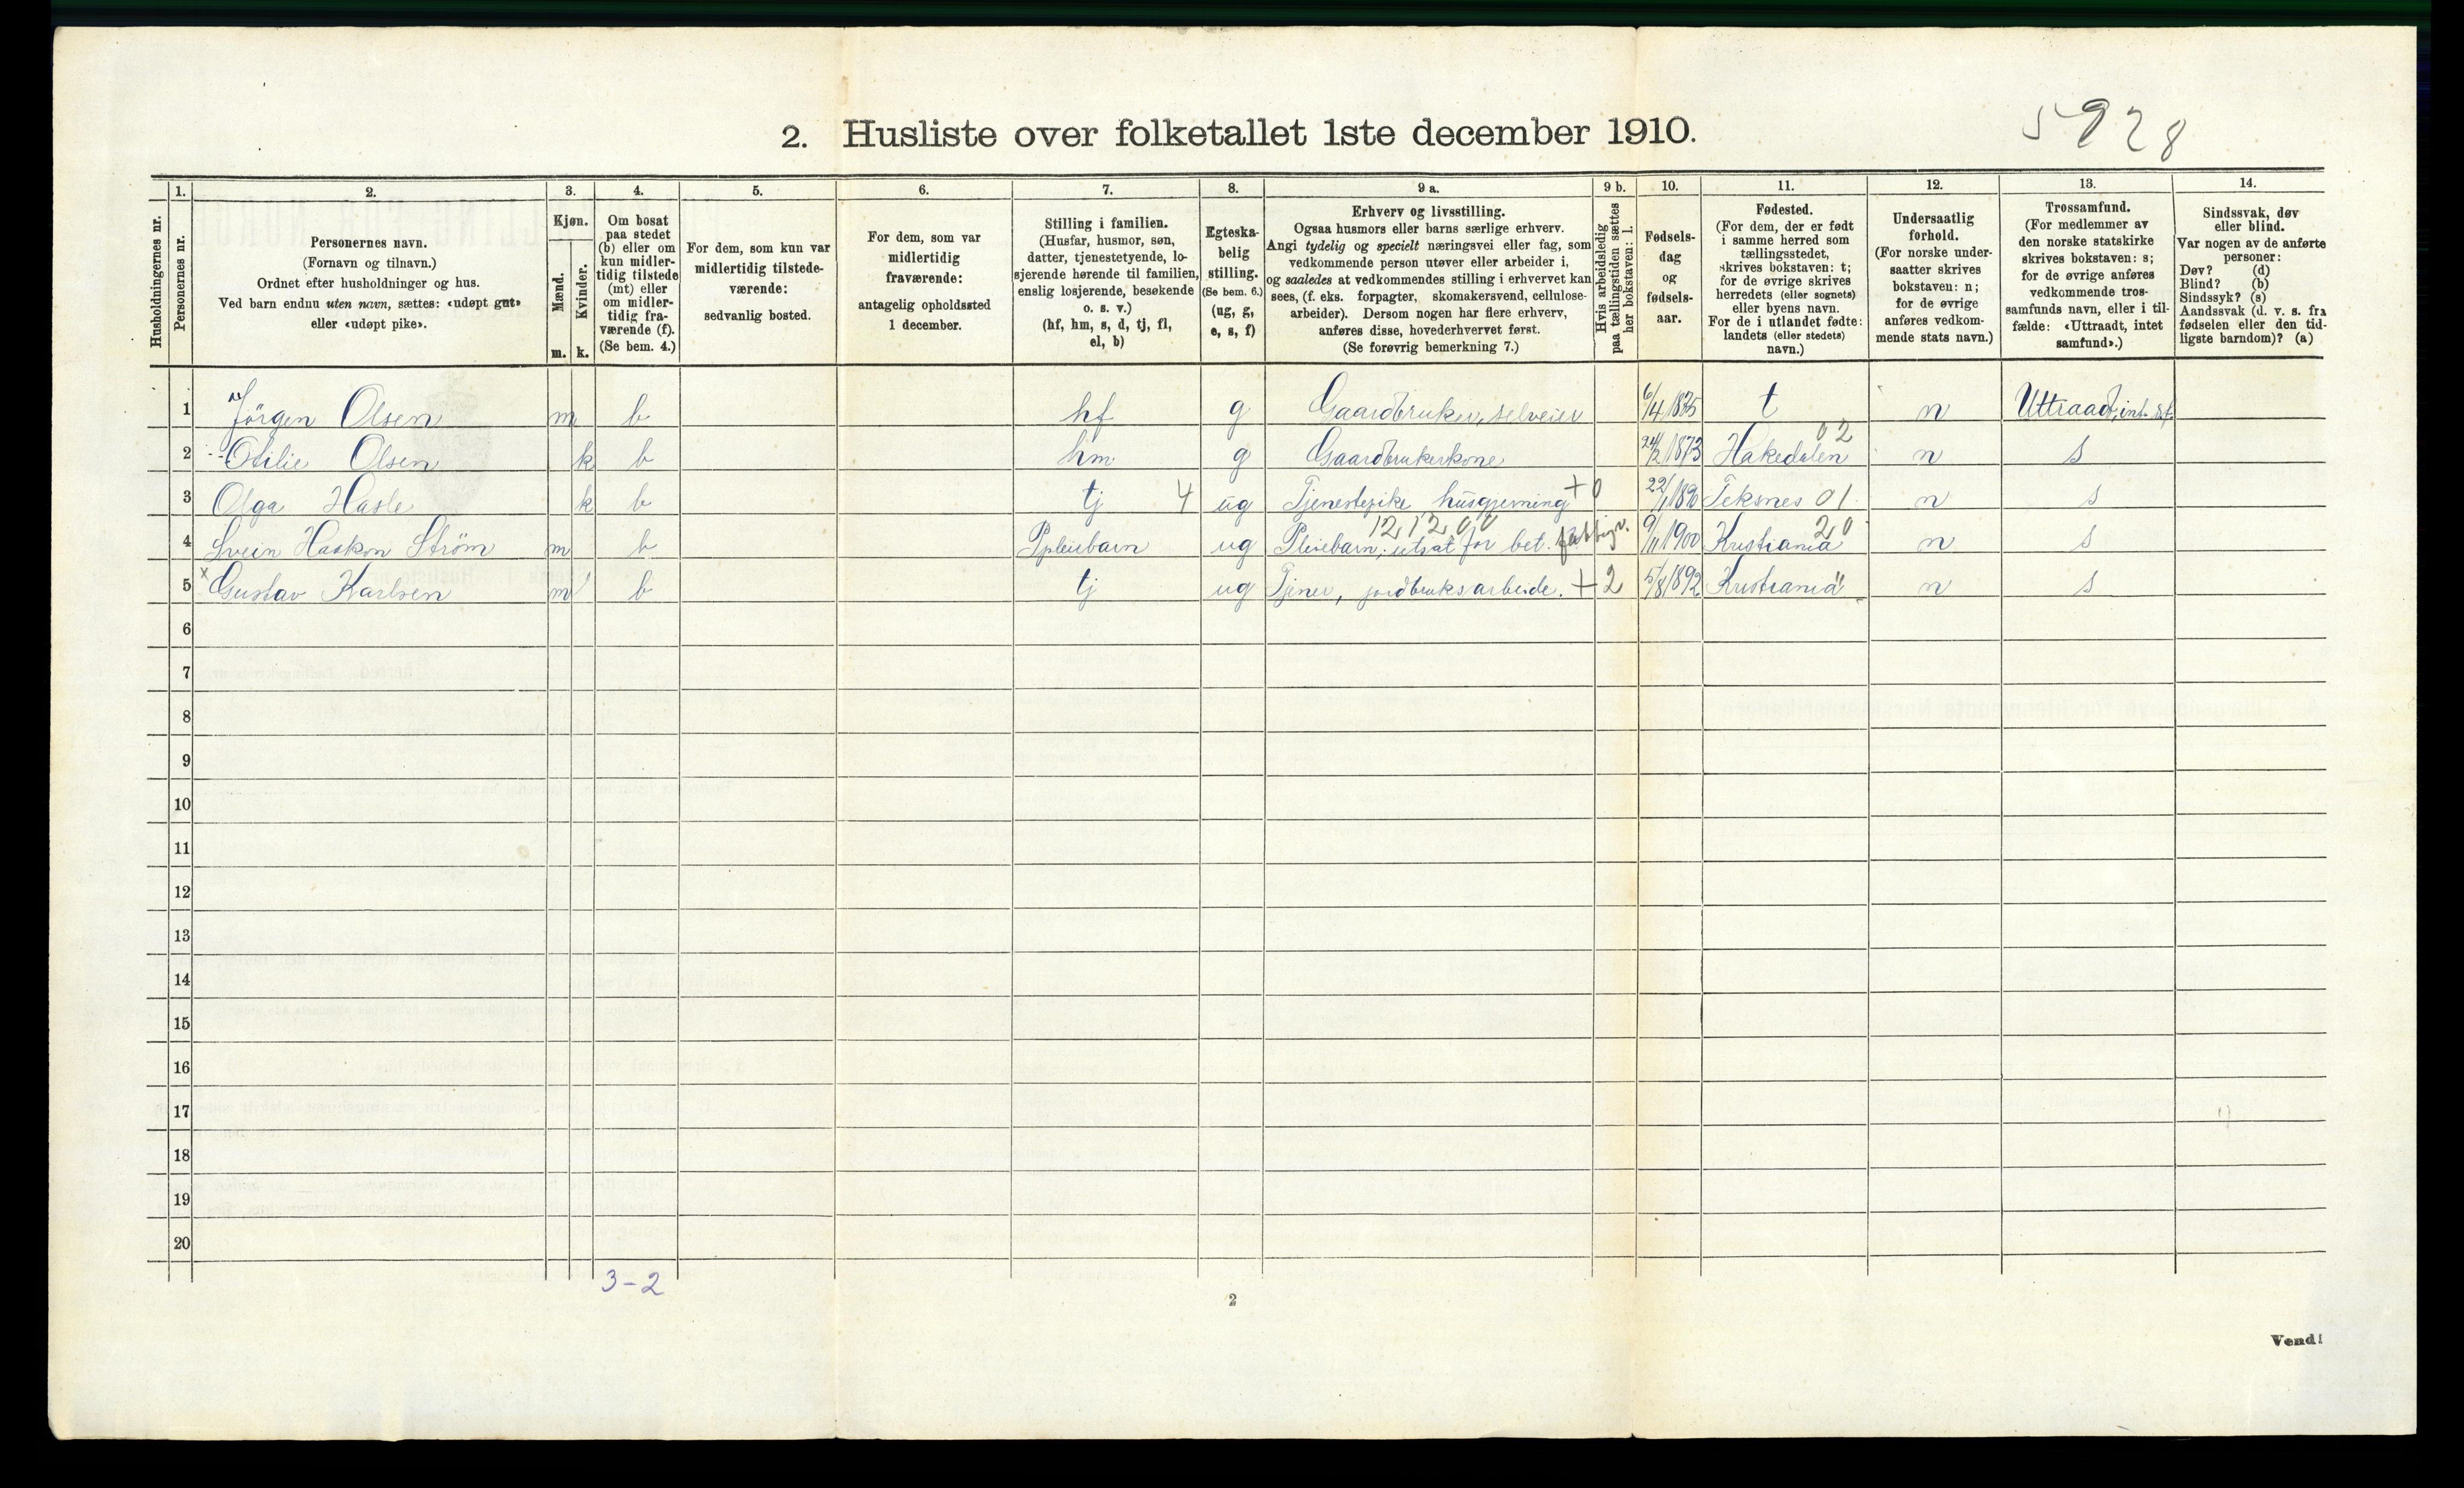 5928
2. Husliste over folketallet 1ste december 1910.
Husholdningernes nr.
1.
Personernes nr.
2.
Personernes navn.
(Fornavn og tilnavn.)
Ordnet efter husholdninger og hus.
Ved barn endnu uten navn, sættes: «udøpt gut»
eller «udøpt pike».
3.
Kjøn.
Mænd.
Kvinder.
m. k.
4.
Om bosat
paa stedet
(b) eller om
kun midler-
tidig tilstede
(mt) eller
om midler-
tidig fra-
værende (f).
(Se bem. 4.)
5.
For dem, som kun var
midlertidig tilstede-
værende:
sedvanlig bosted.
6.
For dem, som var
midlertidig
fraværende:
antagelig opholdssted
1 december.
7.
Stilling i familien.
(Husfar, husmor, søn,
datter, tjenestetyende, lo-
sjerende hørende til familien,
enslig losjerende, besøkende
o. s. v.)
(hf, hm, s, d, tj, fl,
el, b)
8.
Egteska-
belig
stilling.
(Se bem. 6.)
(ug, g,
e, s, f)
9 a.
Erhverv og livsstilling.
Ogsaa husmors eller barns særlige erhverv.
Angi tydelig og specielt næringsvei eller fag, som
vedkommende person utøver eller arbeider i,
og saaledes at vedkommendes stilling i erhvervet kan
sees, (f. eks. forpagter, skomakersvend, cellulose-
arbeider). Dersom nogen har flere erhverv,
anføres disse, hovederhvervet først.
(Se forøvrig bemerkning 7.)
9 b.
Hvis arbeidsledig
paa tællingstiden sættes
her bokstaven: l.
10.
Fødsels-
dag
og
fødsels-
aar.
11.
Fødested.
(For dem, der er født
i samme herred som
tællingsstedet,
skrives bokstaven: t;
for de øvrige skrives
herredets (eller sognets)
eller byens navn.
For de i utlandet fødte:
landets (eller stedets)
navn.)
12.
Undersaatlig
forhold.
(For norske under-
saatter skrives
bokstaven: n;
for de øvrige
anføres vedkom-
mende stats navn.)
13.
Trossamfund.
(For medlemmer av
den norske statskirke
skrives bokstaven: s;
for de øvrige anføres
vedkommende tros-
samfunds navn, eller i til-
fælde: «Uttraadt, intet
samfund».)
14.
Sindssvak, døv
eller blind.
Var nogen av de anførte
personer:
Døv? (d)
Blind? (b)
Sindssyk? (s)
Aandssvak (d. v. s. fra
fødselen eller den tid-
ligste barndom)? (a)
1 Jörgen Olsen m b hf g Gaardbruker, selveier 6/4 1875 t n Uttraadt, int. sf.
02
2 Otilie Olsen k b hm g Gaardbrukerkone 24/2 1873 Hakedalen n s
3 Olga Hasle k b tj 4 ug Tjenestepike husgjerning +0 22/1 1890 Teksnes 01 n s
12,12,00 20
4 Svein Haakon Ström m b Ppleiebarn ug Pleiebarn; utsat for bet. fattigv. 9/11 1900 Kristiania n s
5 x Gustav Karlsen m b tj ug Tjener, jordbruksarbeide. +2 5/8 1892 Kristiania " n s
6
7
8
9
10
11
12
13
14
15
16
17
18
19
20
3-2
2
Vend!